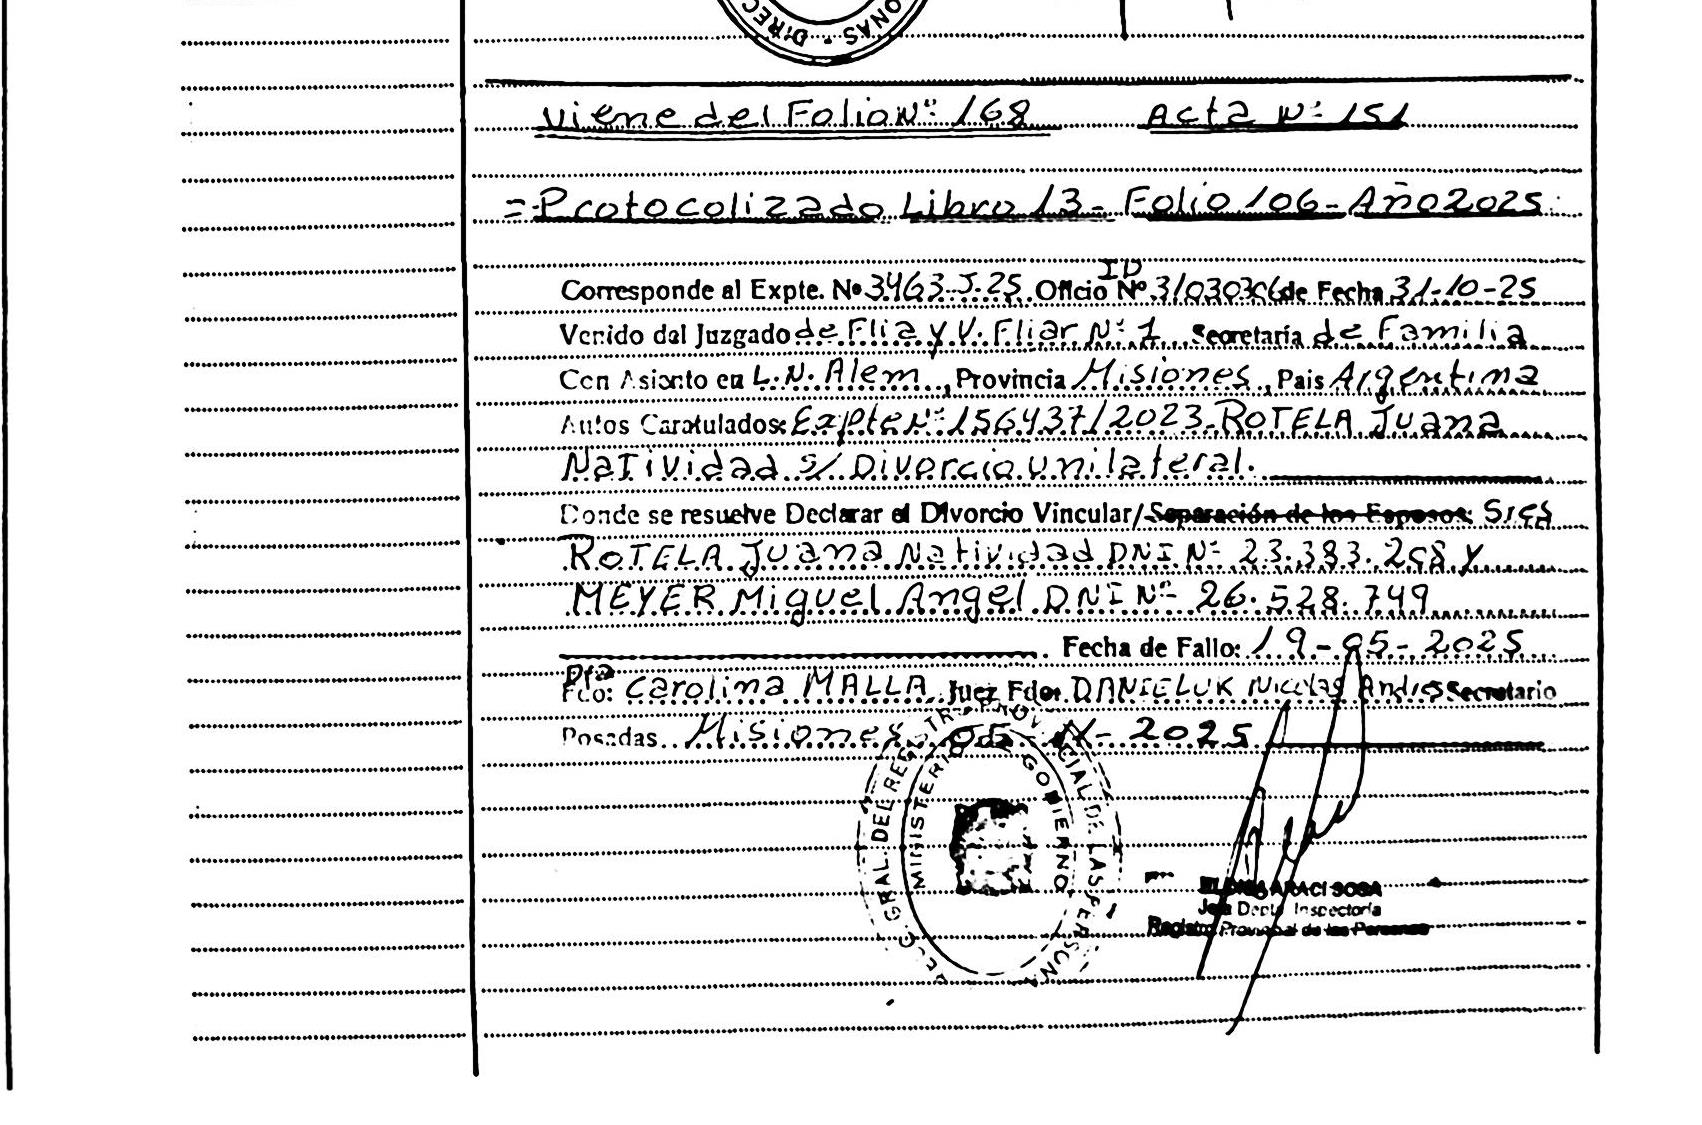 DIREC
ONAS -
Viene del Folio Nº: 168 Acta Nº: 151
=Protocolizado Libro 13- Folio 106- Año 2025
Corresponde al Expte. Nº 3463-J-25 Oficio ID Nº de Fecha 31-10-25
Venido del Juzgado de Flia y V. Fliar Nº: 1 Secretaría de Familia
Con Asiento en L.N. Alem, Provincia Misiones, Pais Argentina
Autos Caratulados: Expte Nº: 156437/2023-ROTELA Juana
Natividad s/ Divorcio unilateral.
Donde se resuelve Declarar el Divorcio Vincular/Separación de los Esposos: Sres
ROTELA Juana Natividad DNI Nº 23.383.268 y
MEYER Miguel Angel DNI Nº 26.528.749
Fecha de Fallo: 19-05-2025
Dra
Fdo: Carolina MALLA Juez Fdo: DANIELUK Nicolas Andres Secretario
Posadas. Misiones 2025
DIREC. GRAL. DEL REGISTRO PROVINCIAL DE LAS PERSONAS
MINISTERIO GOBIERNO
ARACI SOSA
Jefa Depto Inspectoría
Registro Provincial de las Personas